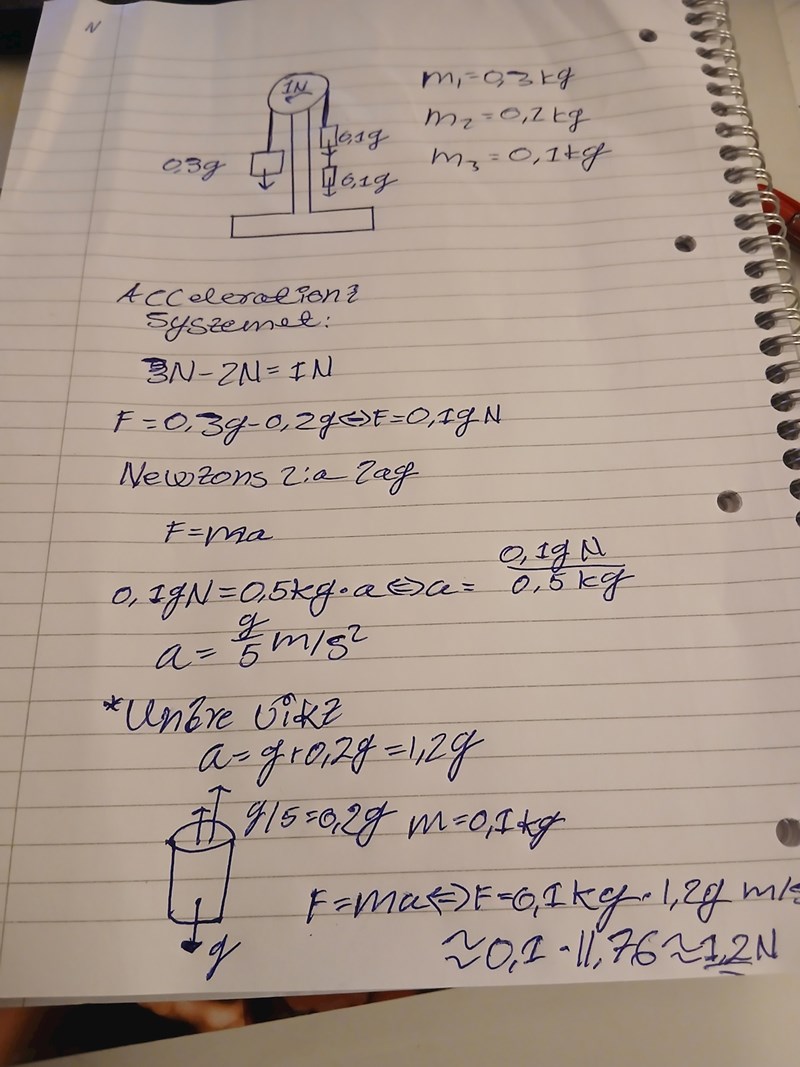 N
1N
m₁=0,3kg
m₂=0,2kg
m₃=0,1kg
0,3g
0,1g
0,1g
Acceleration
Systemet:
3N-2N=1N
F=0,3g-0,2g⇔F=0,1gN
Newtons 2:a lag
F=ma
0,1gN=0,5kg·a⇔a= 0,1gN/0,5kg
a= g/5 m/s²
*Undre vikt
a=g+0,2g=1,2g
g/5=0,2g m=0,1kg
g
F=ma⇔F=0,1kg·1,2g m/s
≈0,1·11,76≈1,2N